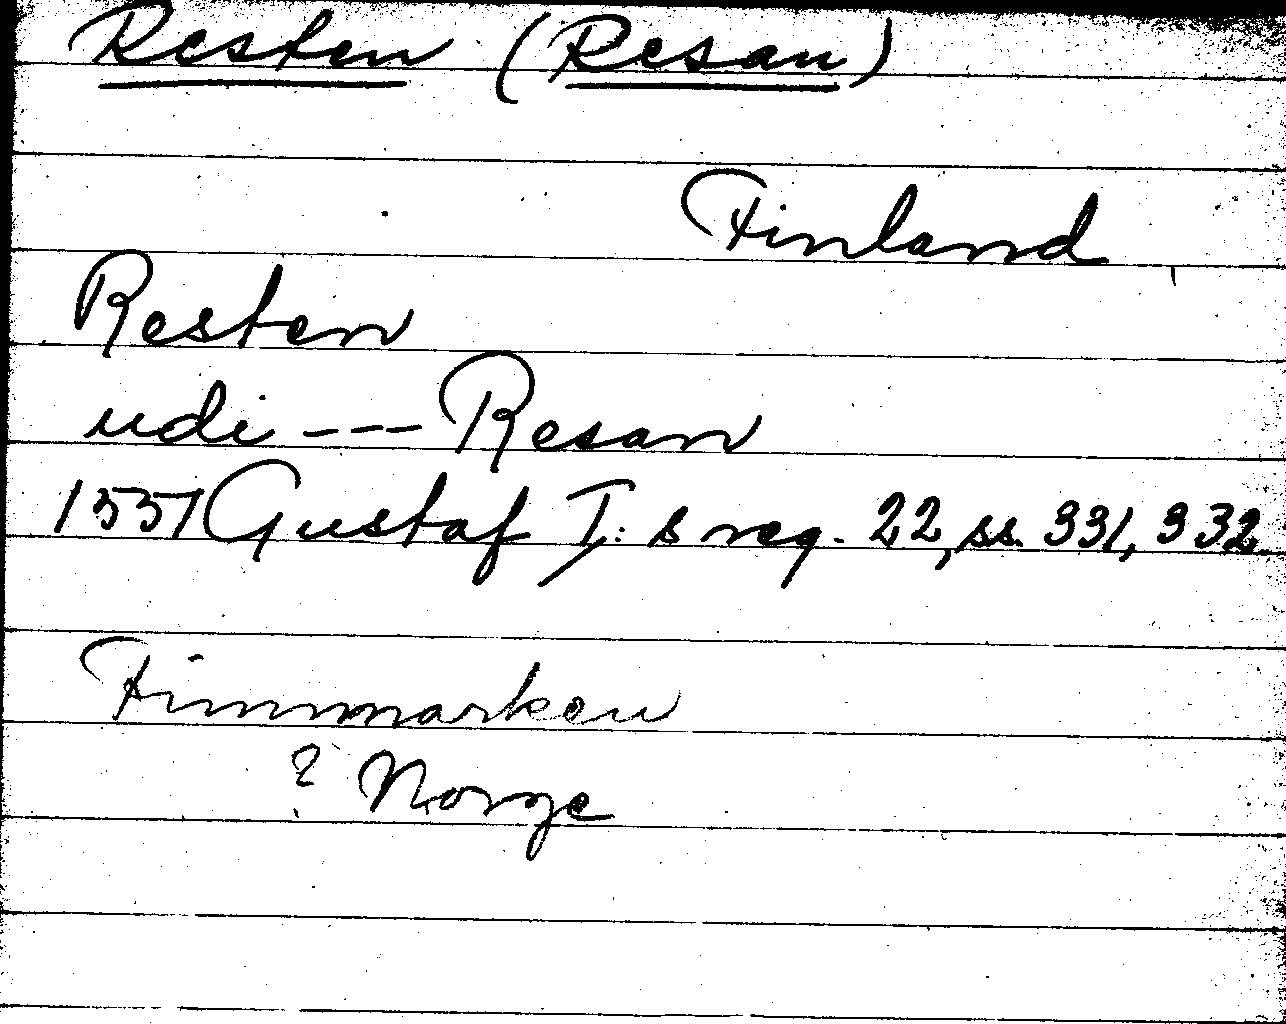 Resten (Resan)
Finland
Resten
udi --- Resan
1551 Gustaf I:s reg. 22, ss. 331, 332.
Finnmarken
? Norge